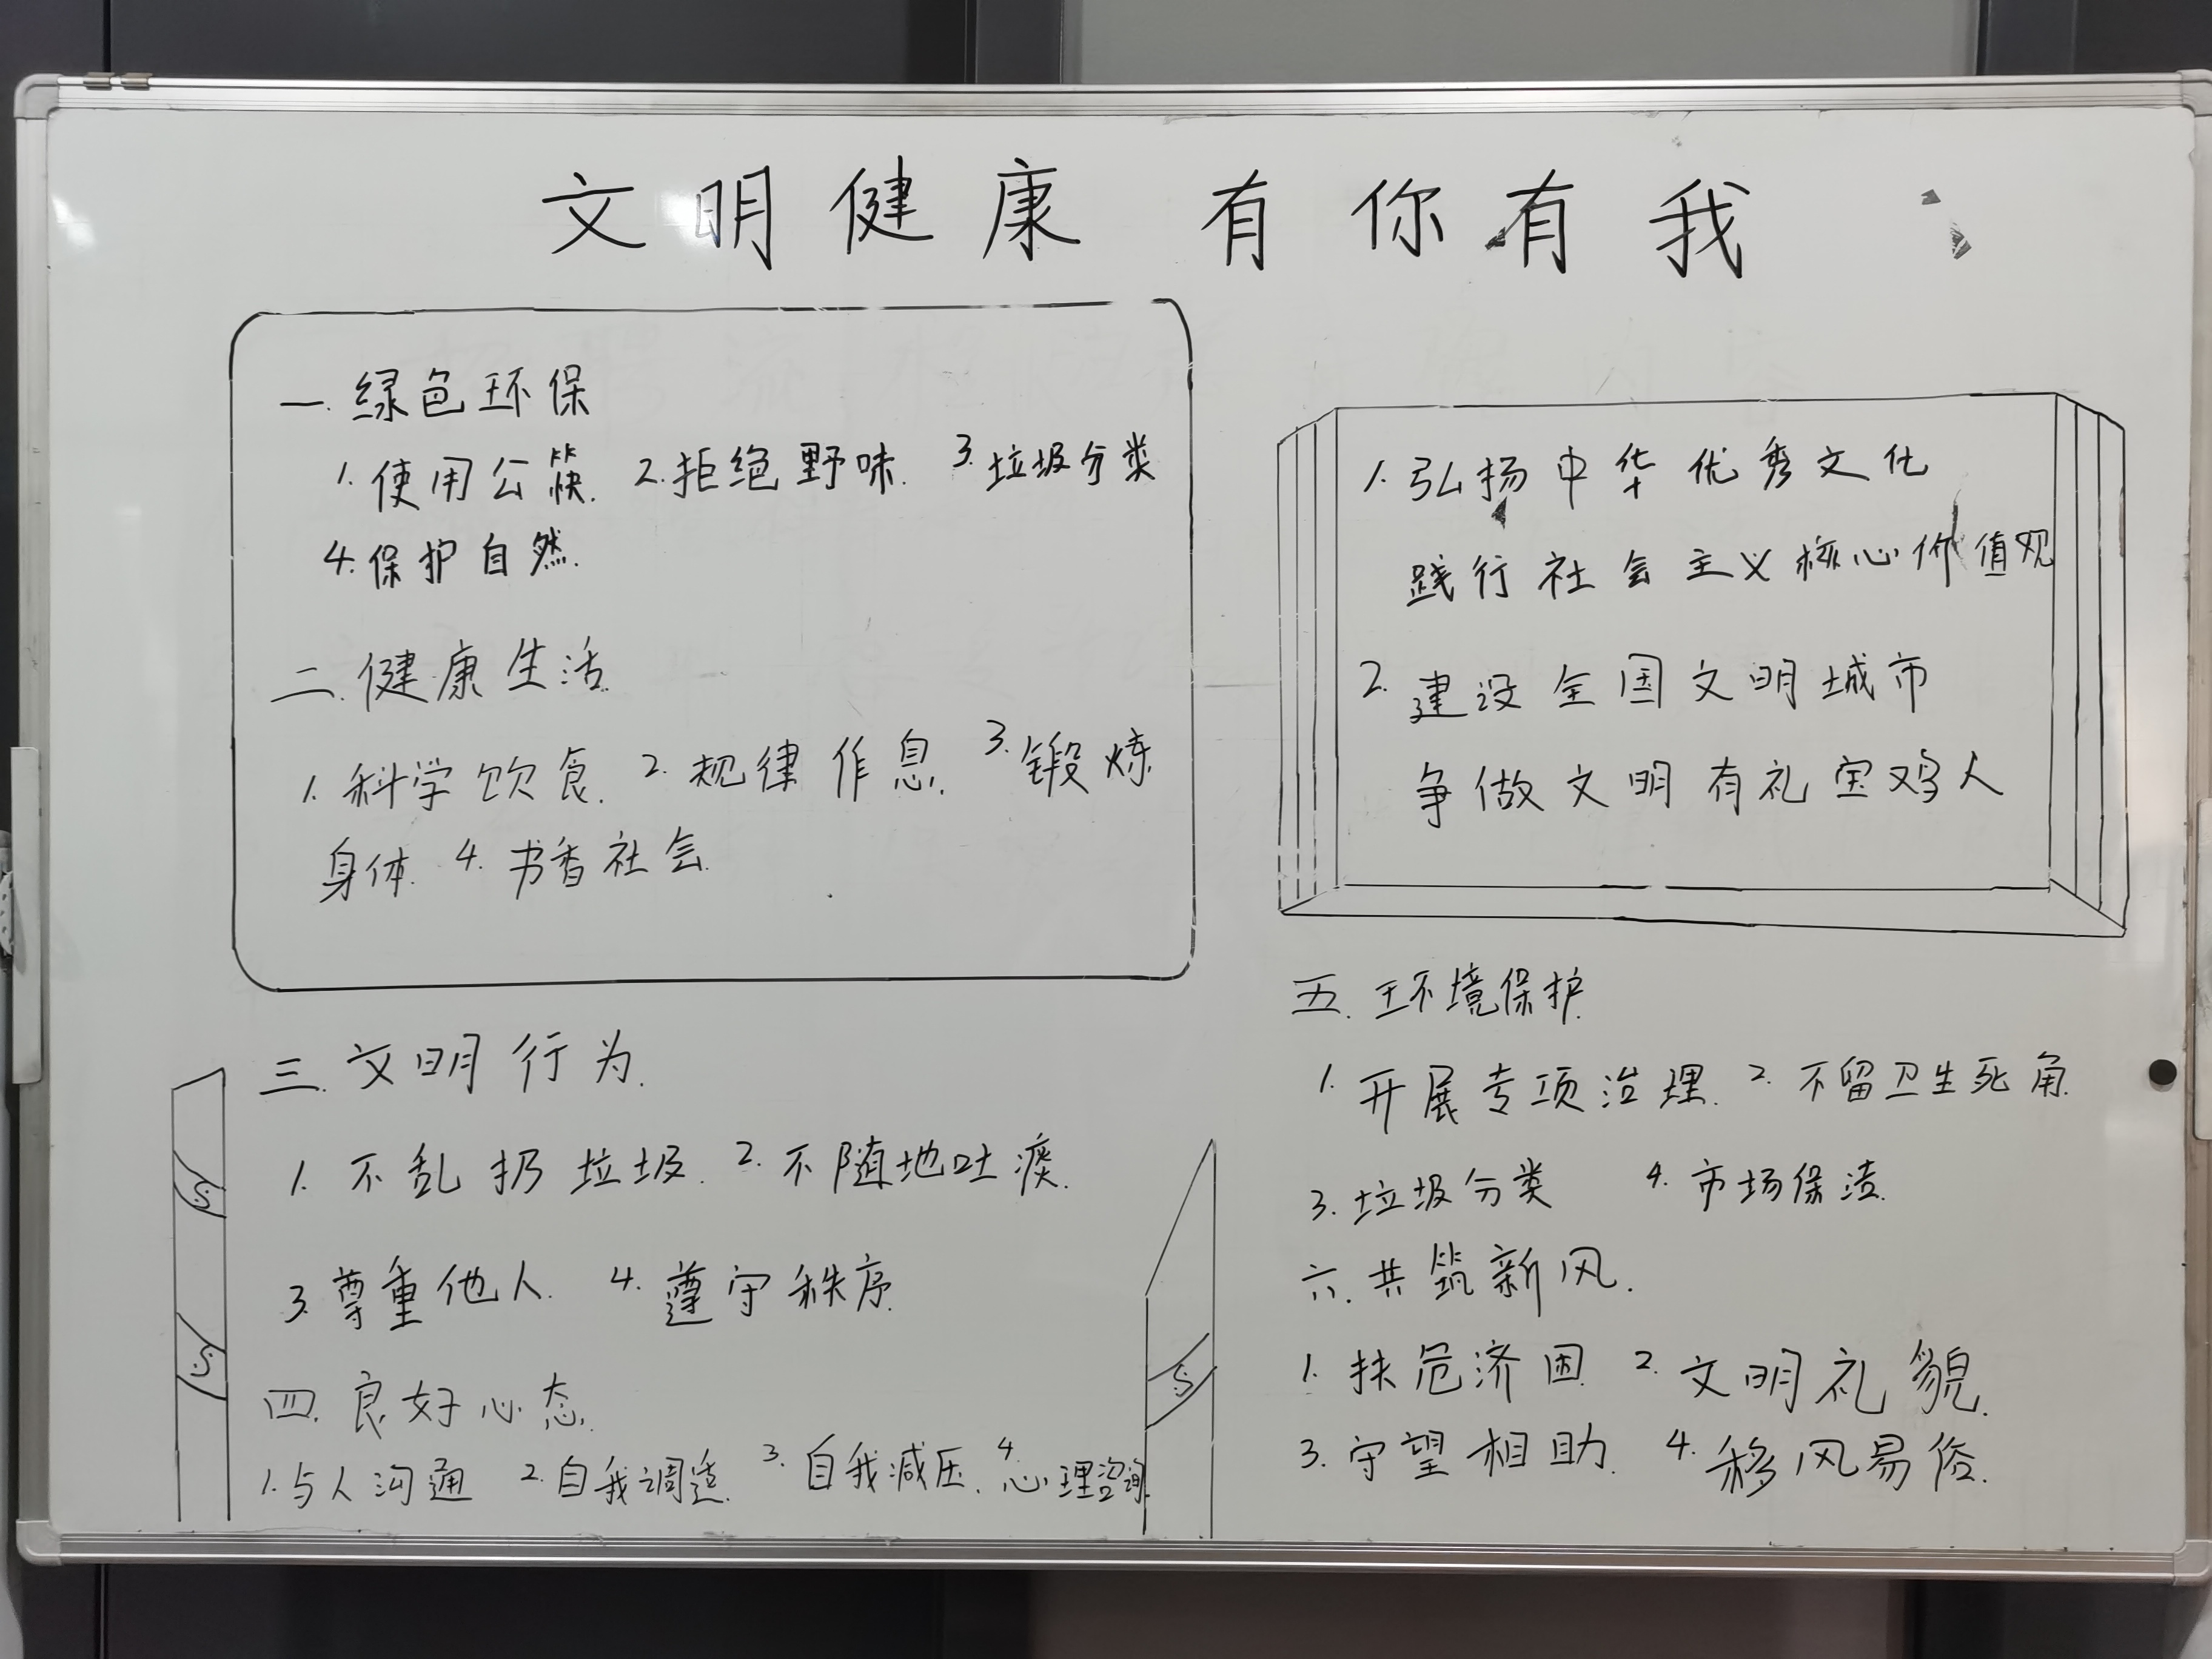 文明健康 有你有我
一.绿色环保
1.使用公筷. 2.拒绝野味. 3.垃圾分类
4.保护自然.
二.健康生活.
1.科学饮食. 2.规律作息. 3.锻炼
身体. 4.书香社会.
三.文明行为.
1.不乱扔垃圾. 2.不随地吐痰.
3.尊重他人. 4.遵守秩序.
四.良好心态.
1.与人沟通 2.自我调适. 3.自我减压. 4.心理咨询.
1.弘扬中华优秀文化
践行社会主义核心价值观
2.建设全国文明城市
争做文明有礼宝鸡人
五.环境保护.
1.开展专项治理. 2.不留卫生死角.
3.垃圾分类 4.市场保洁.
六.共筑新风.
1.扶危济困. 2.文明礼貌.
3.守望相助. 4.移风易俗.